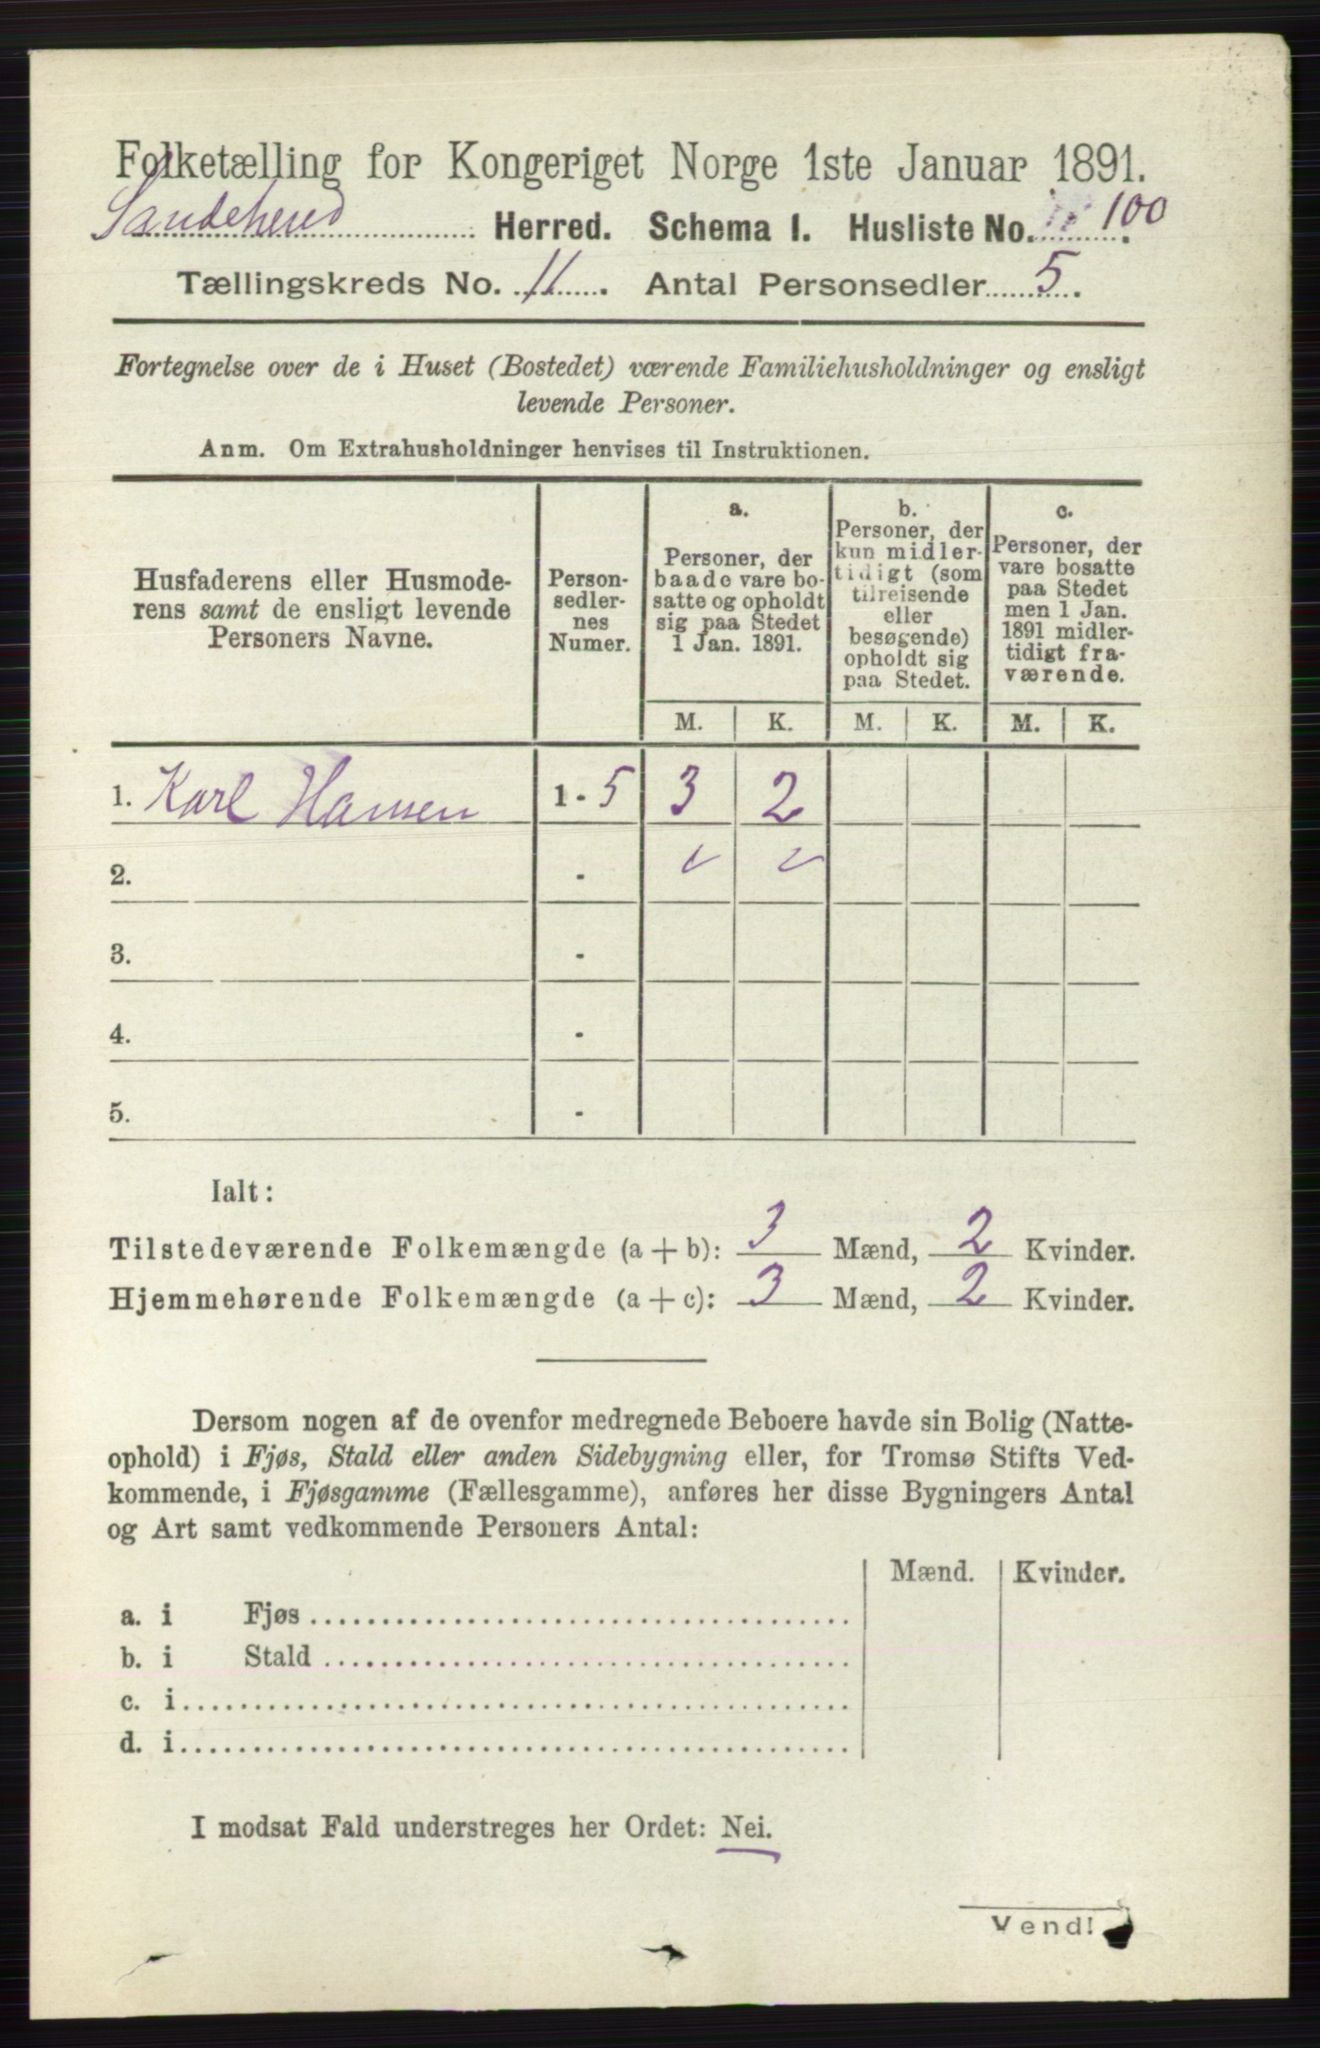 Folketælling for Kongeriget Norge 1ste Januar 1891.
Sandeherred Herred. Schema I. Husliste No. 100
Tællingskreds No. 11. Antal Personsedler 5.
Fortegnelse over de i Huset (Bostedet) værende Familiehusholdninger og ensligt
levende Personer.
Anm. Om Extrahusholdninger henvises til Instruktionen.
Husfaderens eller Husmode-
rens samt de ensligt levende
Personers Navne.
Person-
sedler-
nes
Numer.
a.
Personer, der
baade vare bo-
satte og opholdt
sig paa Stedet
1 Jan. 1891.
b.
Personer, der
kun midler-
tidigt (som
tilreisende
eller
besøgende)
opholdt sig
paa Stedet.
c.
Personer, der
vare bosatte
paa Stedet
men 1 Jan.
1891 midler-
tidigt fra-
værende.
M. K. M. K. M. K.
1. Karl Hansen 1 - 5 3 2
2. -
3. -
4. -
5. -
Ialt:
Tilstedeværende Folkemængde (a + b): 3 Mænd, 2 Kvinder.
Hjemmehørende Folkemængde (a + c): 3 Mænd, 2 Kvinder.
Dersom nogen af de ovenfor medregnede Beboere havde sin Bolig (Natte-
ophold) i Fjøs, Stald eller anden Sidebygning eller, for Tromsø Stifts Ved-
kommende, i Fjøsgamme (Fællesgamme), anføres her disse Bygningers Antal
og Art samt vedkommende Personers Antal:
Mænd. Kvinder.
a. i Fjøs
b. i Stald
c. i
d. i
I modsat Fald understreges her Ordet: Nei.
Vend!